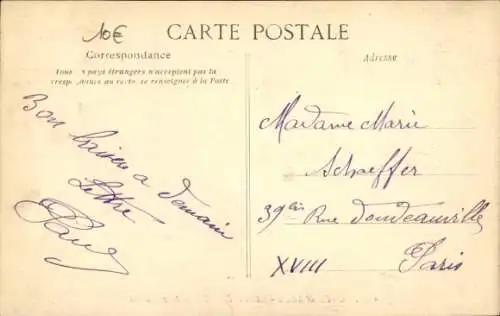 10€
CARTE POSTALE
Correspondance
Adresse
Tous pays étrangers n'acceptent pas la
se renseigner à la Poste
Bon baiser a demain
lettre
Paul
Madame Marie
Schaeffer
39bis Rue Doudeauville
XVIII Paris